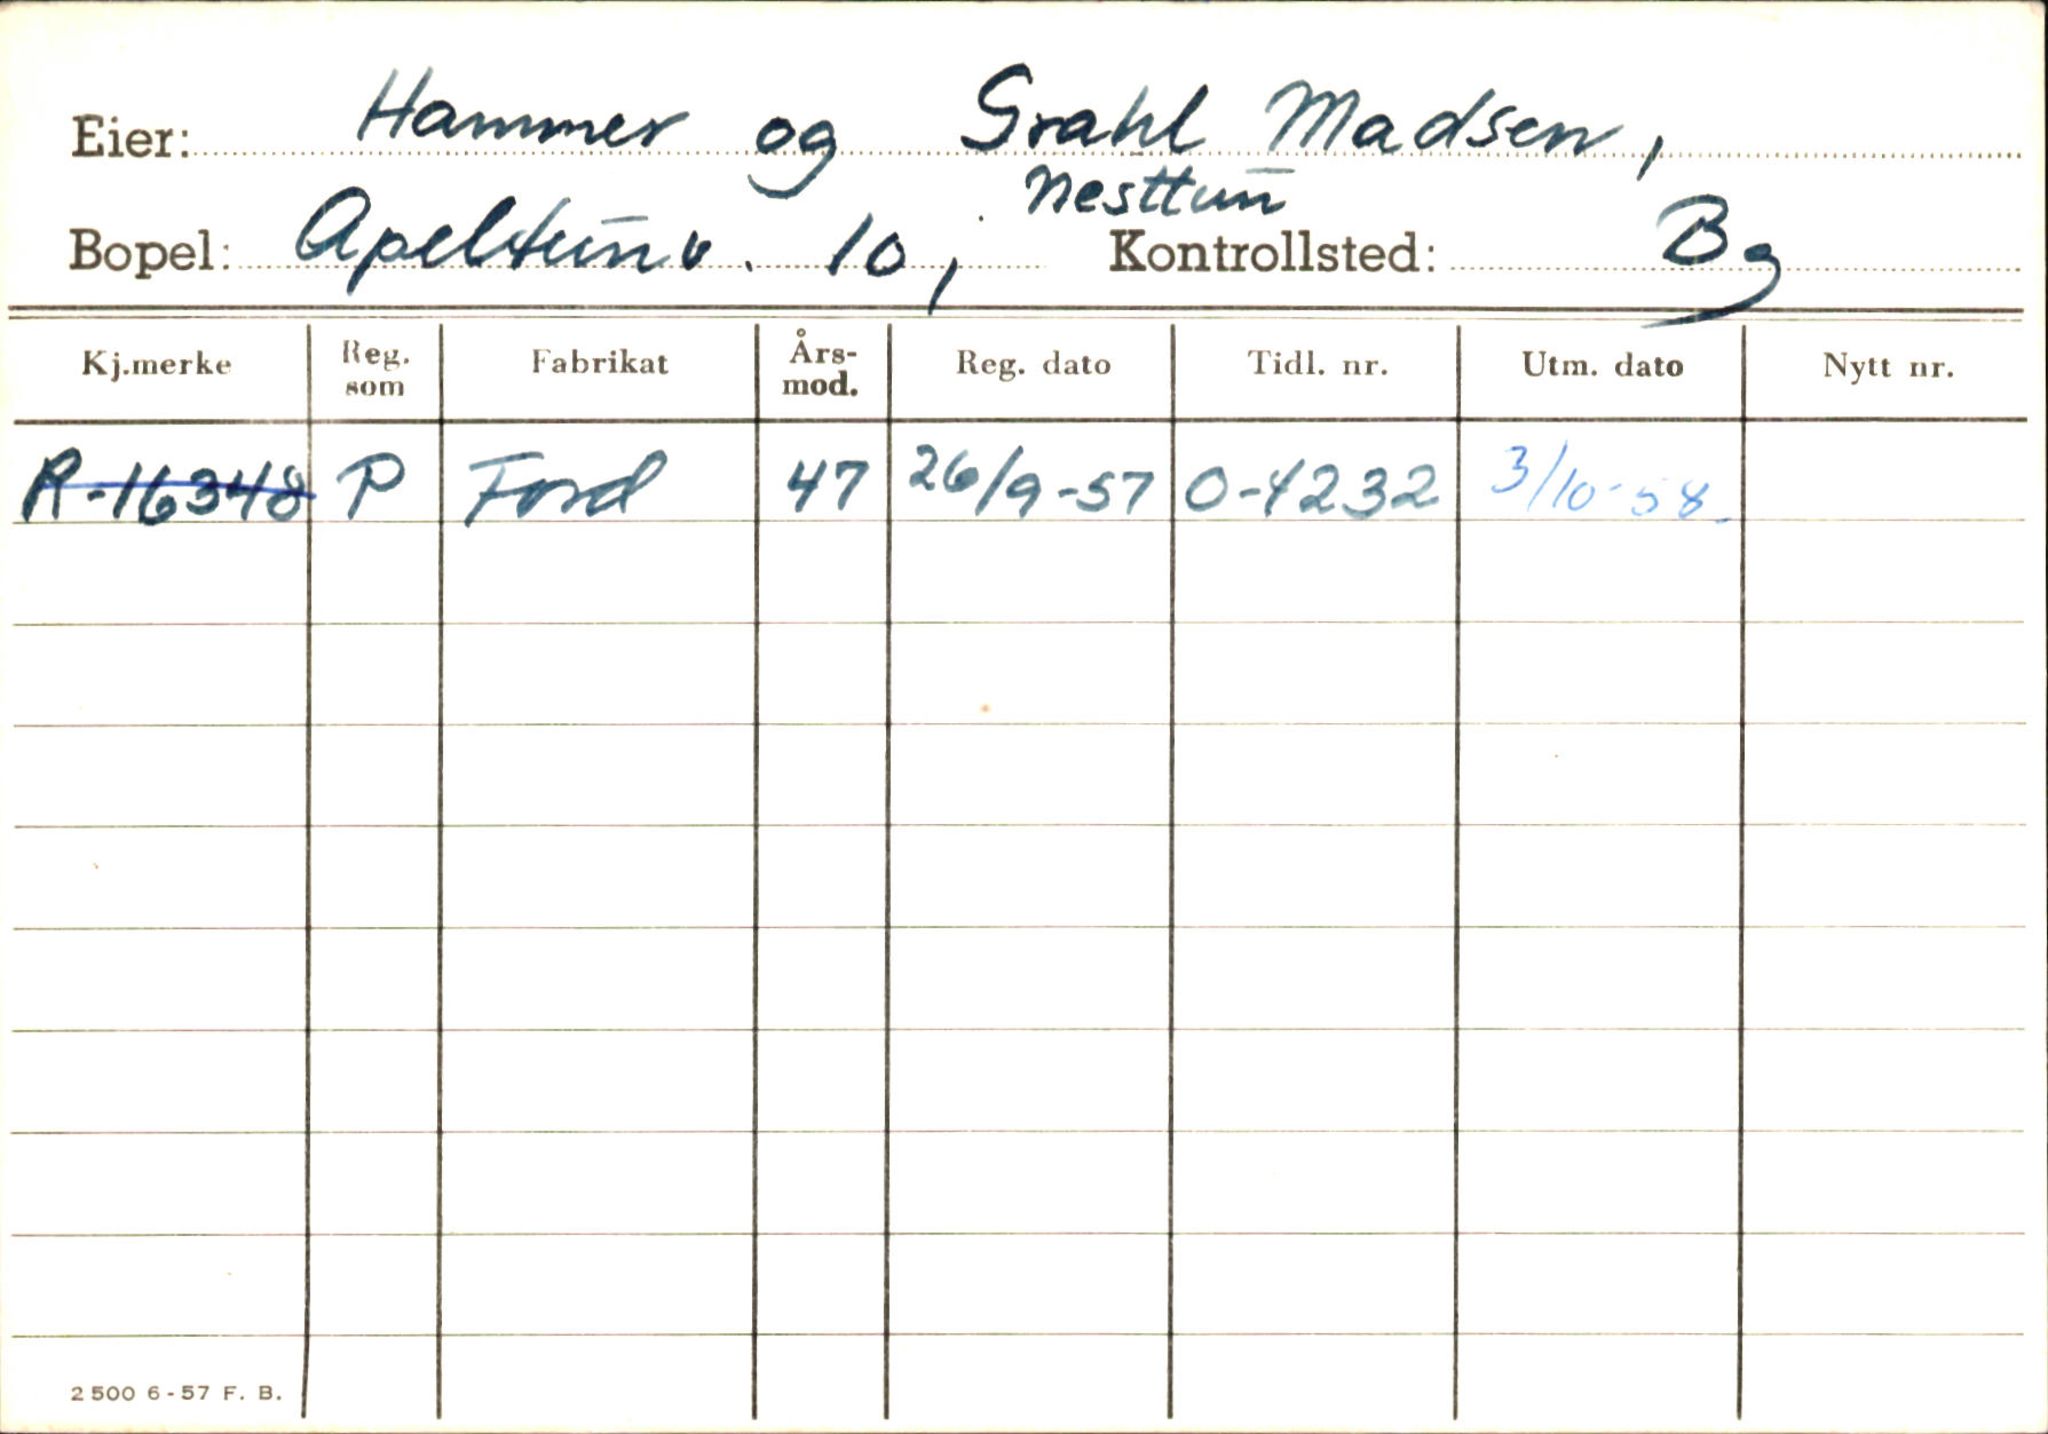 Eier: Hammer og Grahl Madsen,
Nesttun
Bopel: Apeltunv. 10, Kontrollsted: Bg
Kj.merke Reg. som Fabrikat Års-mod. Reg. dato Tidl. nr. Utm. dato Nytt nr.
R-16348 P Ford 47 26/9-57 O-4232 3/10-58.
2500 6-57 F. B.